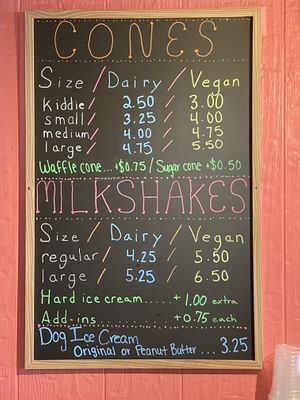 CONES
Size / Dairy / Vegan
Kiddie / 2.50 / 3.00
small / 3.25 / 4.00
medium / 4.00 / 4.75
large / 4.75 / 5.50
Waffle cone...+$0.75 / Sugar cone +$0.50
MILKSHAKES
Size / Dairy / Vegan
regular / 4.25 / 5.50
large / 5.25 / 6.50
Hard ice cream..... + 1.00 extra
Add-ins............ +0.75 each
Dog Ice Cream
Original or Peanut Butter ... 3.25